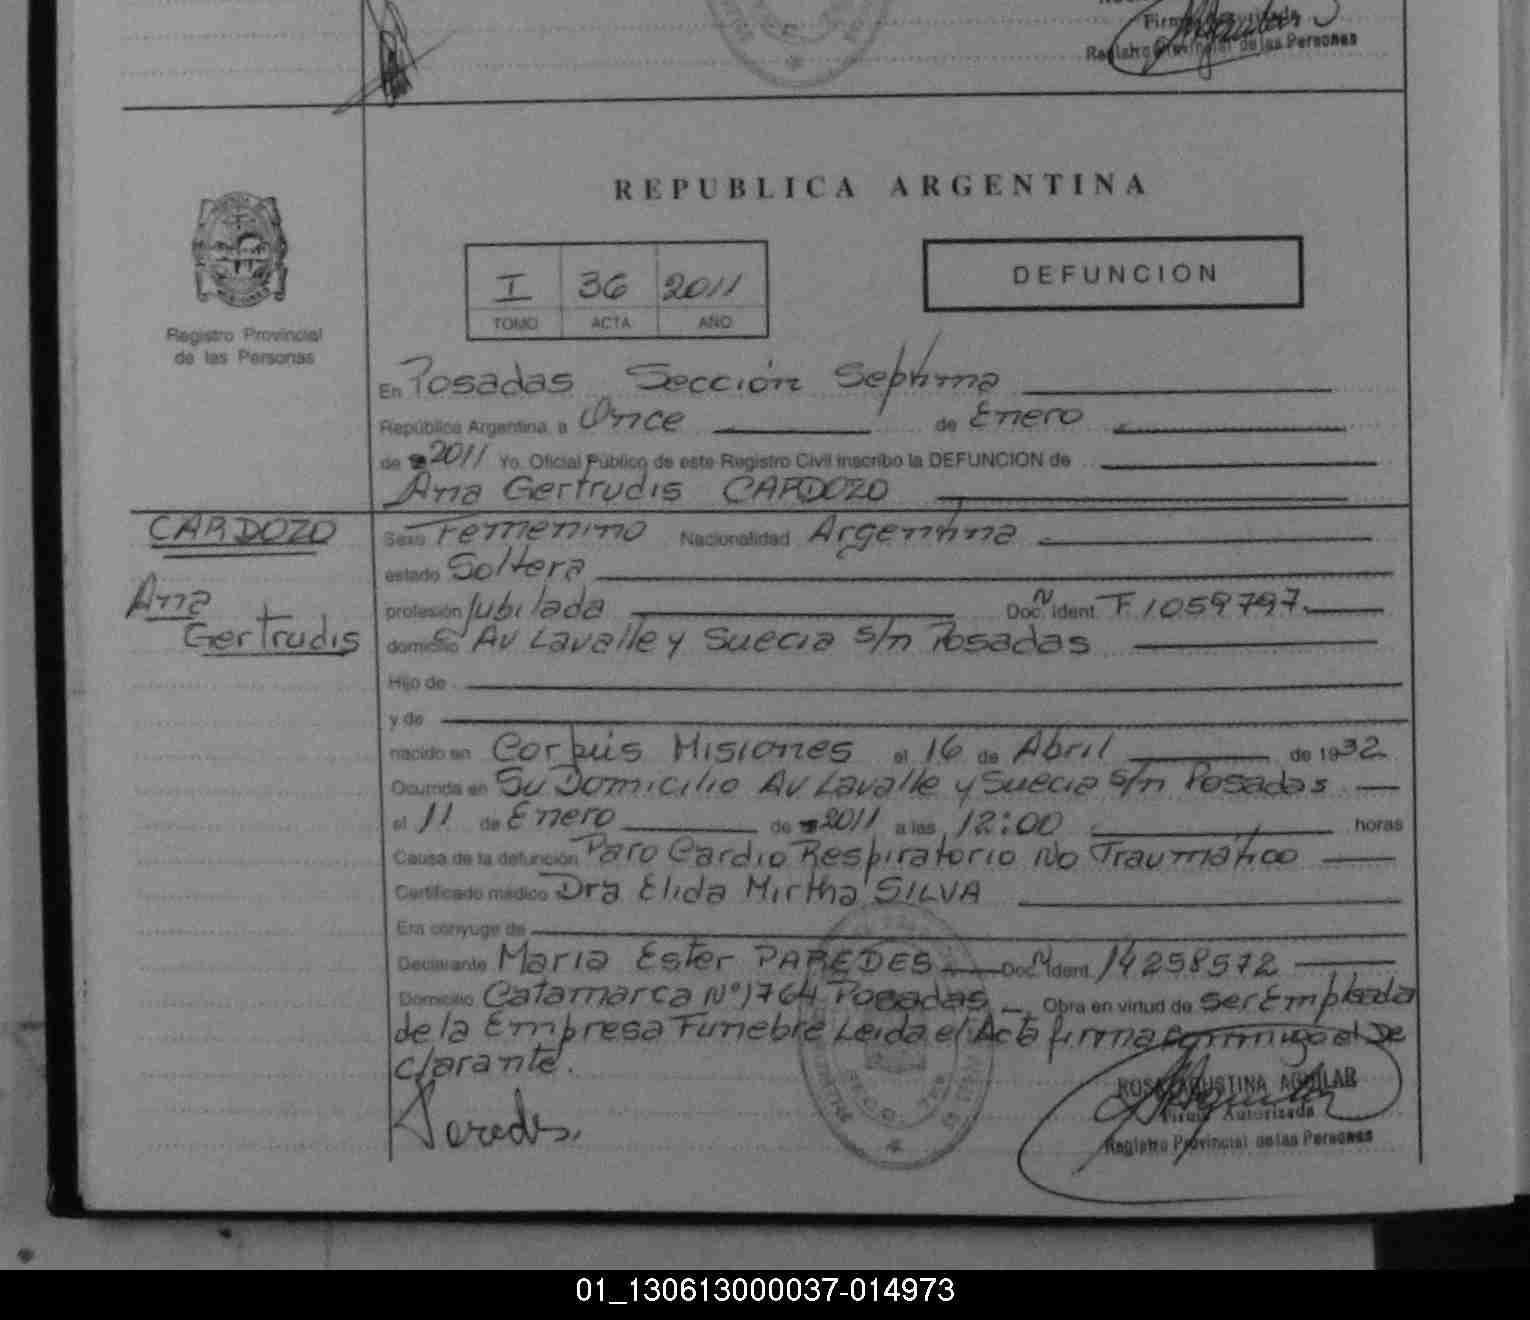 Firma Autorizada
Registro Provincial de las Personas
REPUBLICA ARGENTINA
I 36 2011
TOMO ACTA AÑO
DEFUNCION
Registro Provincial
de las Personas
En Posadas Sección Septima
República Argentina, a Once de Enero
de 2011 Yo, Oficial Público de este Registro Civil inscribo la DEFUNCION de
Ana Gertrudis CARDOZO
CARDOZO
Ana
Gertrudis
Sexo Femenino Nacionalidad Argentina
estado Soltera
profesión Jubilada Doc. N Ident. F. 1.059.797.
domicilio Av Lavalle y Suecia s/n Posadas
Hijo de
y de
nacido en Corpus Misiones el 16 de Abril de 1932
Ocurrida en Su Domicilio Av Lavalle y Suecia s/n Posadas
el 11 de Enero de 2011 a las 12:00 horas
Causa de la defunción Paro Cardio Respiratorio No Traumatico
Certificado médico Dra Elida Mirtha SILVA
Era cónyuge de
Declarante Maria Ester PAREDES Doc. N Ident. 14258572
Domicilio Catamarca Nº 1764 Posadas Obra en virtud de ser Empleada
de la Empresa Funebre Leida el Acta firma conmigo el De
clarante.
Paredes
ROSA AGUSTINA AGUILAR
Firma Autorizada
Registro Provincial de las Personas
01_130613000037-014973